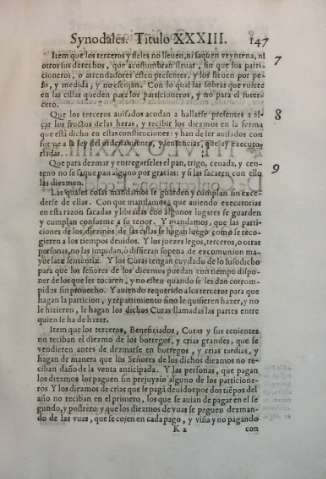 Synodales. Titulo XXXIII. 147
Item que los terceros y fieles no lleuen, ni saquen veyntena, ni 7
otros sus derechos, que acostumbran situar, sin que los parti-
cioneros, o arrendadores esten presentes, y los lleuen por pe-
so, y medida, y no escojan. Con lo qual las sobras que vuiere
en las cillas queden para los particioneros, y no para el
cero.
Que los terceros auisados acudan a hallarse presentes a al- 8
çar los fructos de las heras, y recibir los diezmos en la forma
que está dicho en estas constituciones: y han de ser auisados con
forme a la ley del ordenamiento, y sentencias, que ay executo-
riadas.
Que para dezmar y entregarseles el pan, trigo, ceuada, y cen- 9
teno no se saque pan alguno por gracias: y si las sacaren, con ello
las diezman.
Las quales cosas mandamos se guarden y cumplan sin exce-
derse de ellas. Con que mandamos, que auiendo executorias
en esta razon sacadas y losadas con algunos lugares se guarden
y cumplan conforme a su tenor. Y mandamos, que las parti-
ciones de los diezmos de las cillas se hagan luego como se reco-
gieren a los tiempos deuidos. Y los juezes legos, terceros, o otras
personas, no las impidan, o difieran so pena de excomunion ma-
yor latæ sententiæ. Y los Curas tengan cuydado de lo susodicho
para que los señores de los diezmos puedan con tiempo dispo-
ner de los que les tocaren, y no esten quando se les dan corrom-
pidos sin prouecho. Y auiendo requerido a los terceros para que
hagan la particion, y repartimiento sino le quisieren hazer, y no
le hizieren, le hagan los dichos Curas llamadas las partes entre
quien se ha de hazer.
Item que los terceros, Beneficiados, Curas y sus tenientes
no reciban el diezmo de los borregos, y crias grandes, que se
vendieren antes de dezmarse en borregos, y crias tardias, y
hagan de manera que los Señores de los dichos diezmos no re-
ciban daño de la venta anticipada. Y las personas, que pagan
los diezmos los paguen sin prejuyzio alguno de los particione-
ros. Y los diezmos de crias que se pagã deuidos por dos tiẽpos del
año no reciban en el primero, los que se auian de pagar en el se
gundo, y postrero: y que los diezmos de vuas se paguen dezman-
do de las vuas, que se cojen en cada pago, y viña y no pagando
K 2 con